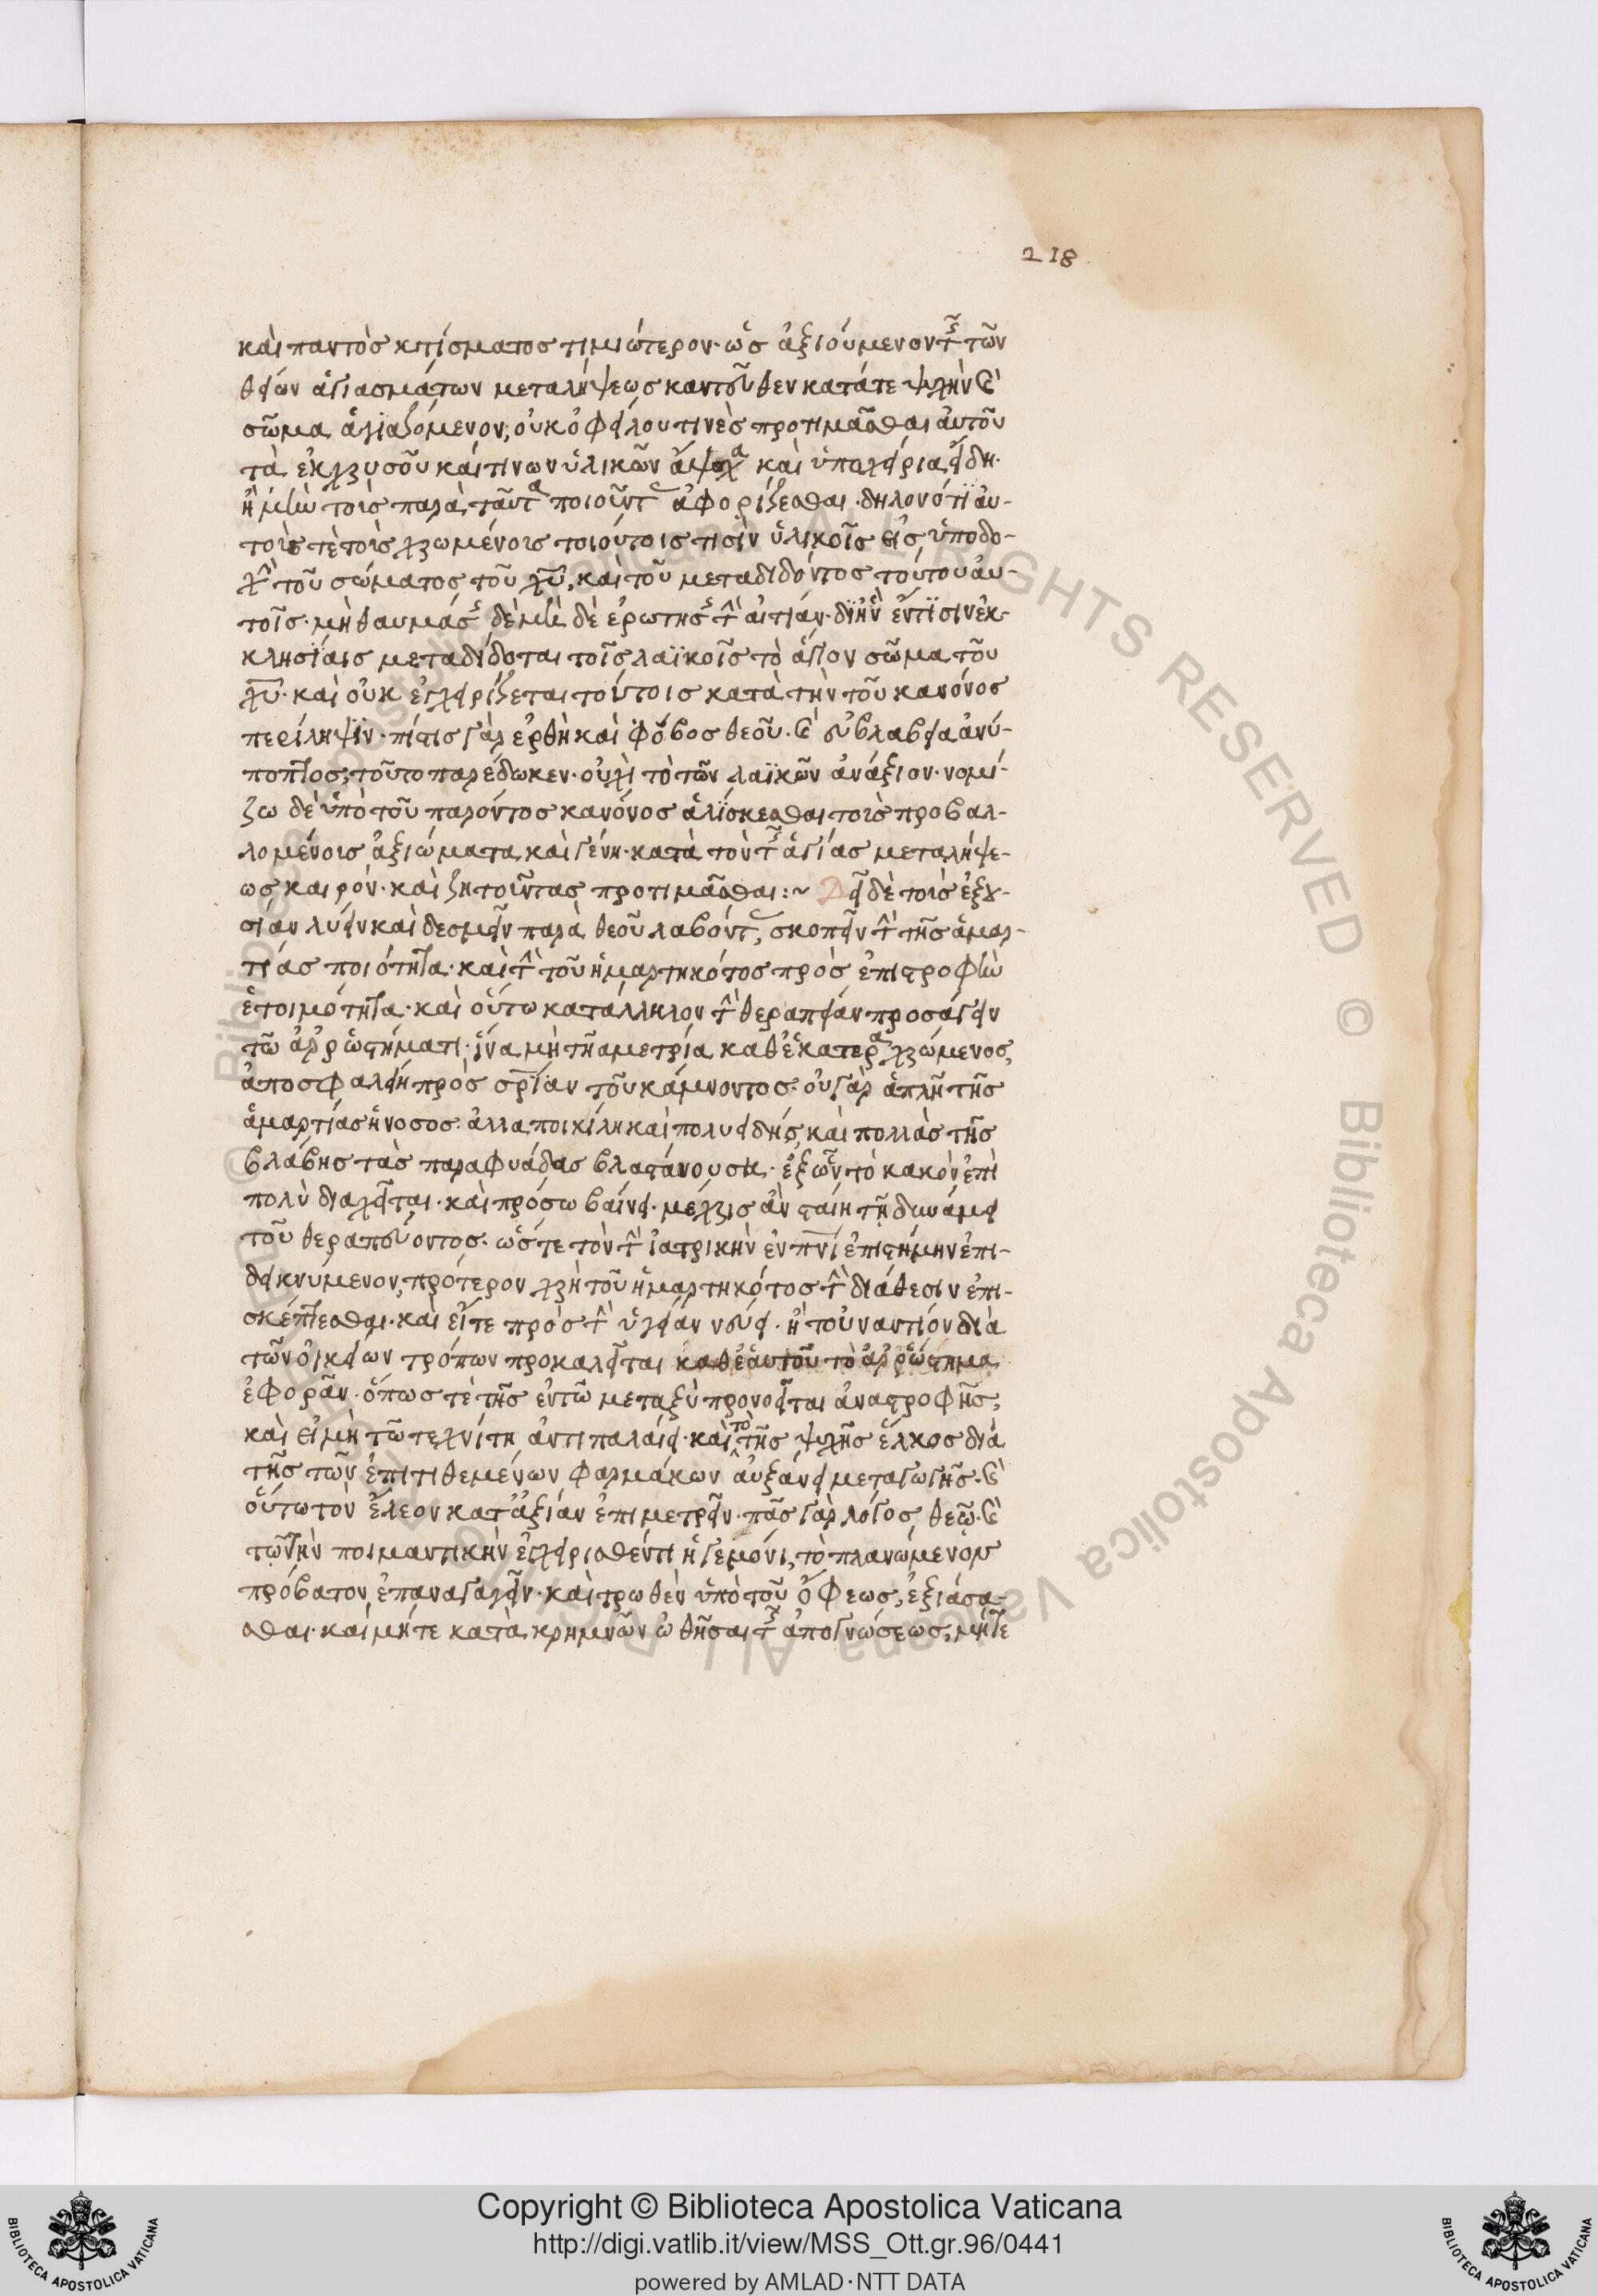 218
καὶ παντὸς κτίσματος τιμιώτερον· ὡς ἀξιούμενον τῆς τῶν
θείων ἁγιασμάτων μεταλήψεως καντεῦθεν κατά τε ψυχὴν καὶ
σῶμα ἁγιαζόμενον, οὐκ ὀφείλουτινὲς προτιμᾶσθαι αὐτοῦ
τὰ ἐκ χρυσοῦ καί τινων ὑλικῶν ἄψυχα καὶ ὑποχείρια εἴδη·
ἢ μὴν τοὶς παρὰ ταῦτα ποιοῦντας ἀφορίζεσθαι· δηλονότι αὐ-
τοὶς τὲ τοὶς χρωμένοις τοιούτοις τισὶν ὑλικοῖς εἰς ὑποδο-
χὴν τοῦ σώματος τοῦ χυ, καὶ τοῦ μεταδιδόντος τούτου αὐ-
τοῖς· μὴ θαυμάσης δὲ μὴ δὲ ἐρωτήσης τὴν αἰτίαν· δι ἣν ἔν τισιν ἐκ-
κλησίαις μεταδίδοται τοῖς λαϊκοῖς τὸ ἅγιον σῶμα τοῦ
χυ· καὶ οὐκ ἐγχειρίζεται τούτοις κατὰ τὴν τοῦ κανόνος
περίληψιν· πίστις γὰρ ὀρθὴ καὶ φόβος θεοῦ· καὶ εὐλάβεια ἀνύ-
ποπτος, τοῦτο παρέδωκεν· οὐχὶ τὸ τῶν λαϊκῶν ἀνάξιον· νομί-
ζω δὲ ὑπὸ τοῦ παρόντος κανόνος ἁλίσκεσθαι τοὶς προβαλ-
λομένοις ἀξιώματα καὶ γένη· κατὰ τὸν τῆς ἁγίας μεταλήψε-
ως καιρόν· καὶ ζητοῦντας προτιμᾶσθαι :~ Δεῖ δὲ τοὶς ἐξου-
σίαν λύειν καὶ δεσμεῖν παρὰ θεοῦ λαβόντας, σκοπεῖν τὴν τῆς ἁμαρ-
τίας ποιότητα· καὶ τὴν τοῦ ἡμαρτηκότος πρὸς ἐπιστροφὴν
ἑτοιμότητα· καὶ οὕτω κατάλληλον τὴν θεραπείαν προσάγειν
τῶ ἀρρωστήματι· ἵνα μὴ τῆ αμετρία καθ ἑκατερα χρώμενος,
ἀποσφαλείη πρὸς σρίαν τοῦ κάμνοντος· οὐ γὰρ ἁπλῆ τῆς
ἁμαρτίας ἡ νοσος· ἀλλα ποικίλη καὶ πολυειδής, καὶ πολλὰς τῆς
βλάβης τὰς παραφυάδας βλαστάνουσα· ἐξ ὧν τὸ κακὸν ἐπὶ
πολὺ διαχεῖται· καὶ πρόσω βαίνει· μέχρις ἂν σταίη τῇ δυνάμει
τοῦ θεραπεύοντος· ὥστε τὸν τὴν ἰατρικὴν ἐν πνι ἐπιστήμην ἐπι-
δεικνύμενον, πρότερον χρὴ τοῦ ἡμαρτηκότος τὴν διάθεσιν ἐπι-
σκέπτεσθαι· καὶ εἴτε πρὸς τὴν ὑγείαν νεύει· ἢ τοὐναντίον διὰ
τῶν οἰκείων τρόπων προκαλεῖται καθ ἑαυτοῦ τὸ ἀρρώστημα
ἐφορᾶν· ὅπως τὲ τῆς ἐν τῶ μεταξὺ προνοεῖται ἀναστροφῆς,
καὶ εἰ μὴ τῶ τεχνίτη ἀντιπαλαίει· καὶ τὸ τῆς ψυχῆς ἕλκος διὰ
τῆς τῶν ἐπιτιθεμένων φαρμάκων αὐξάνει μεταγωγῆς· καὶ
οὕτω τὸν ἔλεον κατ ἀξίαν ἐπιμετρεῖν· πᾶς γὰρ λόγος θεῷ· καὶ
τῷ τὴν ποιμαντικὴν ἐγχειρισθέντι ἡγεμόνι, τὸ πλανώμενον
πρόβατον ἐπαναγαγεῖν· καὶ τρωθὲν ὑπὸ τοῦ ὄφεως, ἐξιάσα-
σθαι· καὶ μήτε κατὰ κρημνῶν ὠθῆσαι τῆς ἀπογνώσεως, μήτε
Copyright © Biblioteca Apostolica Vaticana
http://digi.vatlib.it/view/MSS_Ott.gr.96/0441
powered by AMLAD·NTT DATA